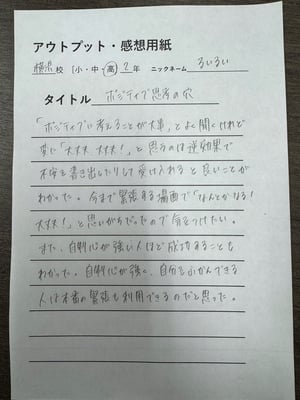 アウトプット・感想用紙
横浜校 (小・中・高) 2年 ニックネーム るいるい
タイトル ポジティブ思考の穴
「ポジティブに考えることが大事」とよく聞くけれど
実は「大丈夫 大丈夫!」と思うのは逆効果で
不安を書き出したりして受け入れると良いことが
わかった。今まで緊張する場面で「なんとかなる!
大丈夫!」と思いがちだったので気をつけたい。
また、自制心が強い人ほど成功することも
わかった。自制心が強く、自分を小かんできる
人は本番の緊張も利用できるのだと思った。